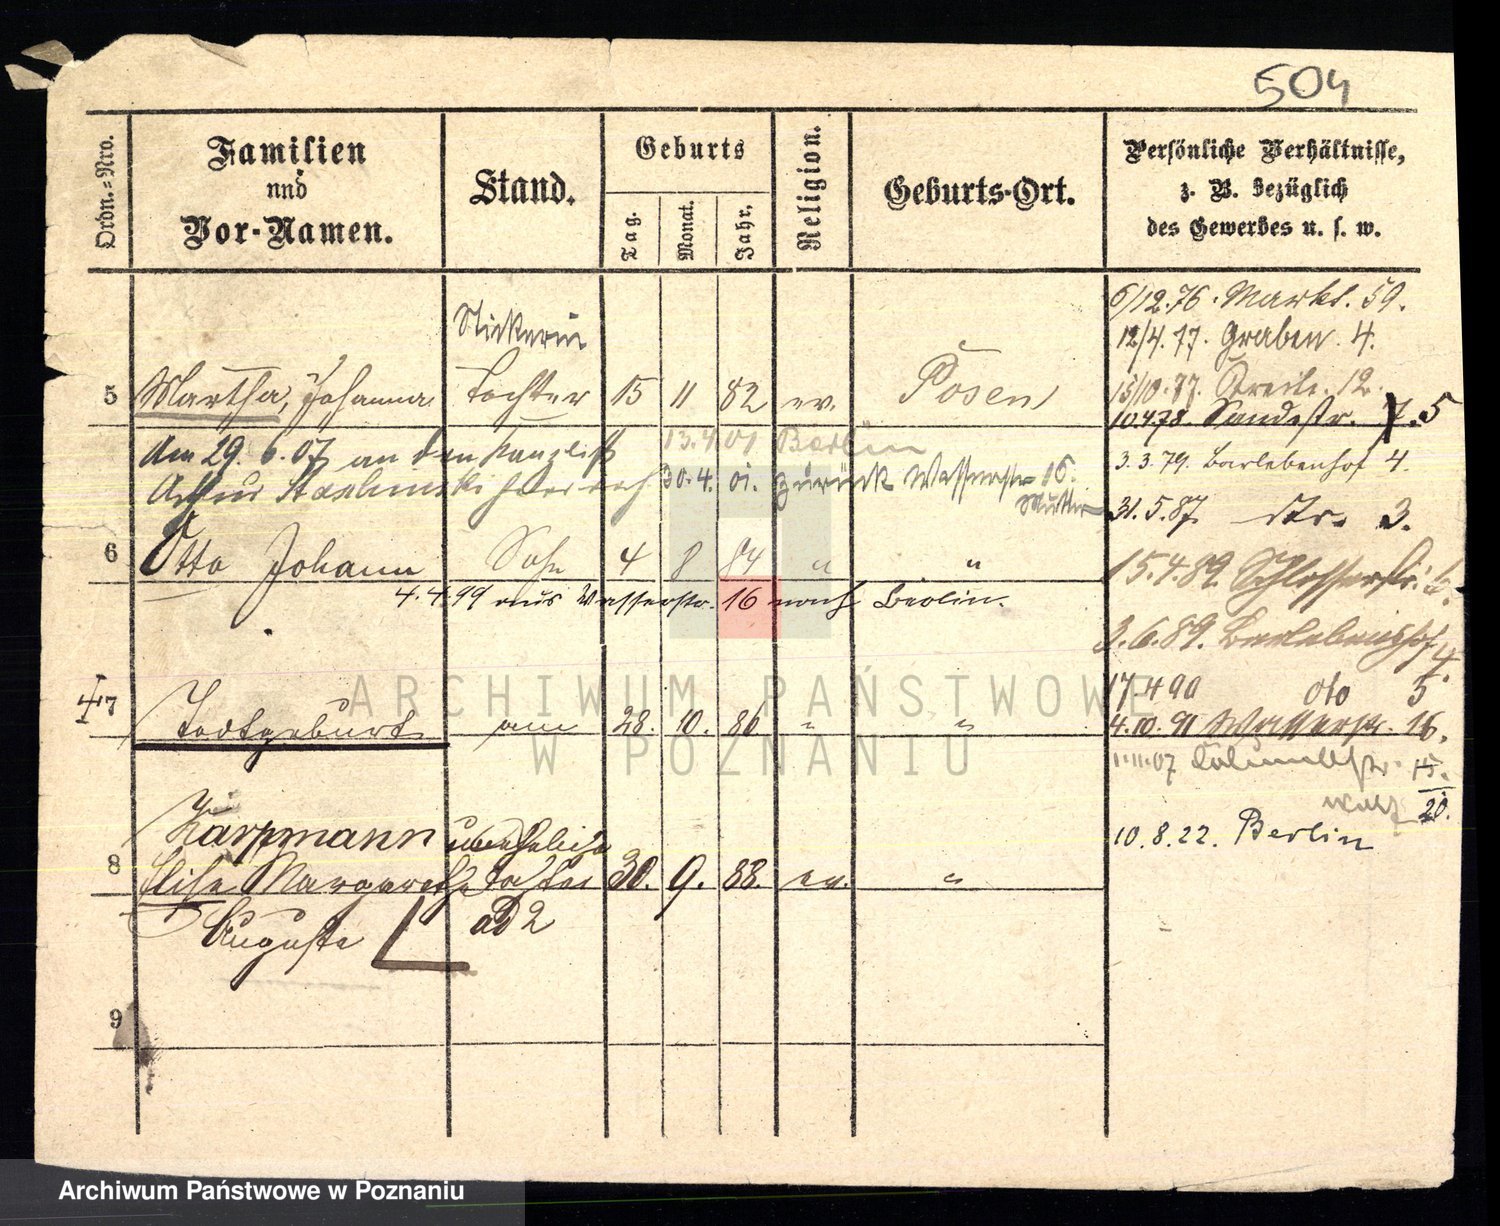 504
Ordn.=Nro.
Familien
nnd
Vor-Namen.
Stand.
Geburts
Tag.
Monat.
Jahr.
Religion.
Geburts-Ort.
Persönliche Verhältnisse,
z. B. bezüglich
des Gewerbes u. s. w.
Stickerin
5 Martha, Johanna Tochter 15 11 82 ev. Posen
13.4.01 Berlin
Am 29. 6. 07 an den Kanzlist
Arthur 30.4. 01. zurück Wasserstr 16.
Mutter
6 Otto Johann Sohn 4 8 84 " "
4.4.99 aus Wasserstr. 16 nach Berlin.
7 Todtgeburt am 28. 10. 86 " "
Karpmann uneheliche
8 Elise Margarethe Tochter 30. 9. 88. ev. "
Auguste ad 2
9
6/12.76. Markt. 59.
12/4.77. Graben. 4.
15/10.77. 12.
10.4.78. Sandstr. 7. 5
3.3.79. Barlebenhof 4.
31.5.87. str. 3.
15.4.89. Schlosserstr. 6.
3.6.89. Barlebenshof 4.
17.4.90 dto 5
4.10.91 Wasserstr. 16.
1.11.07 15.
20.
10.8.22. Berlin
ARCHIWUM PAŃSTWOWE
W POZNANIU
Archiwum Państwowe w Poznaniu